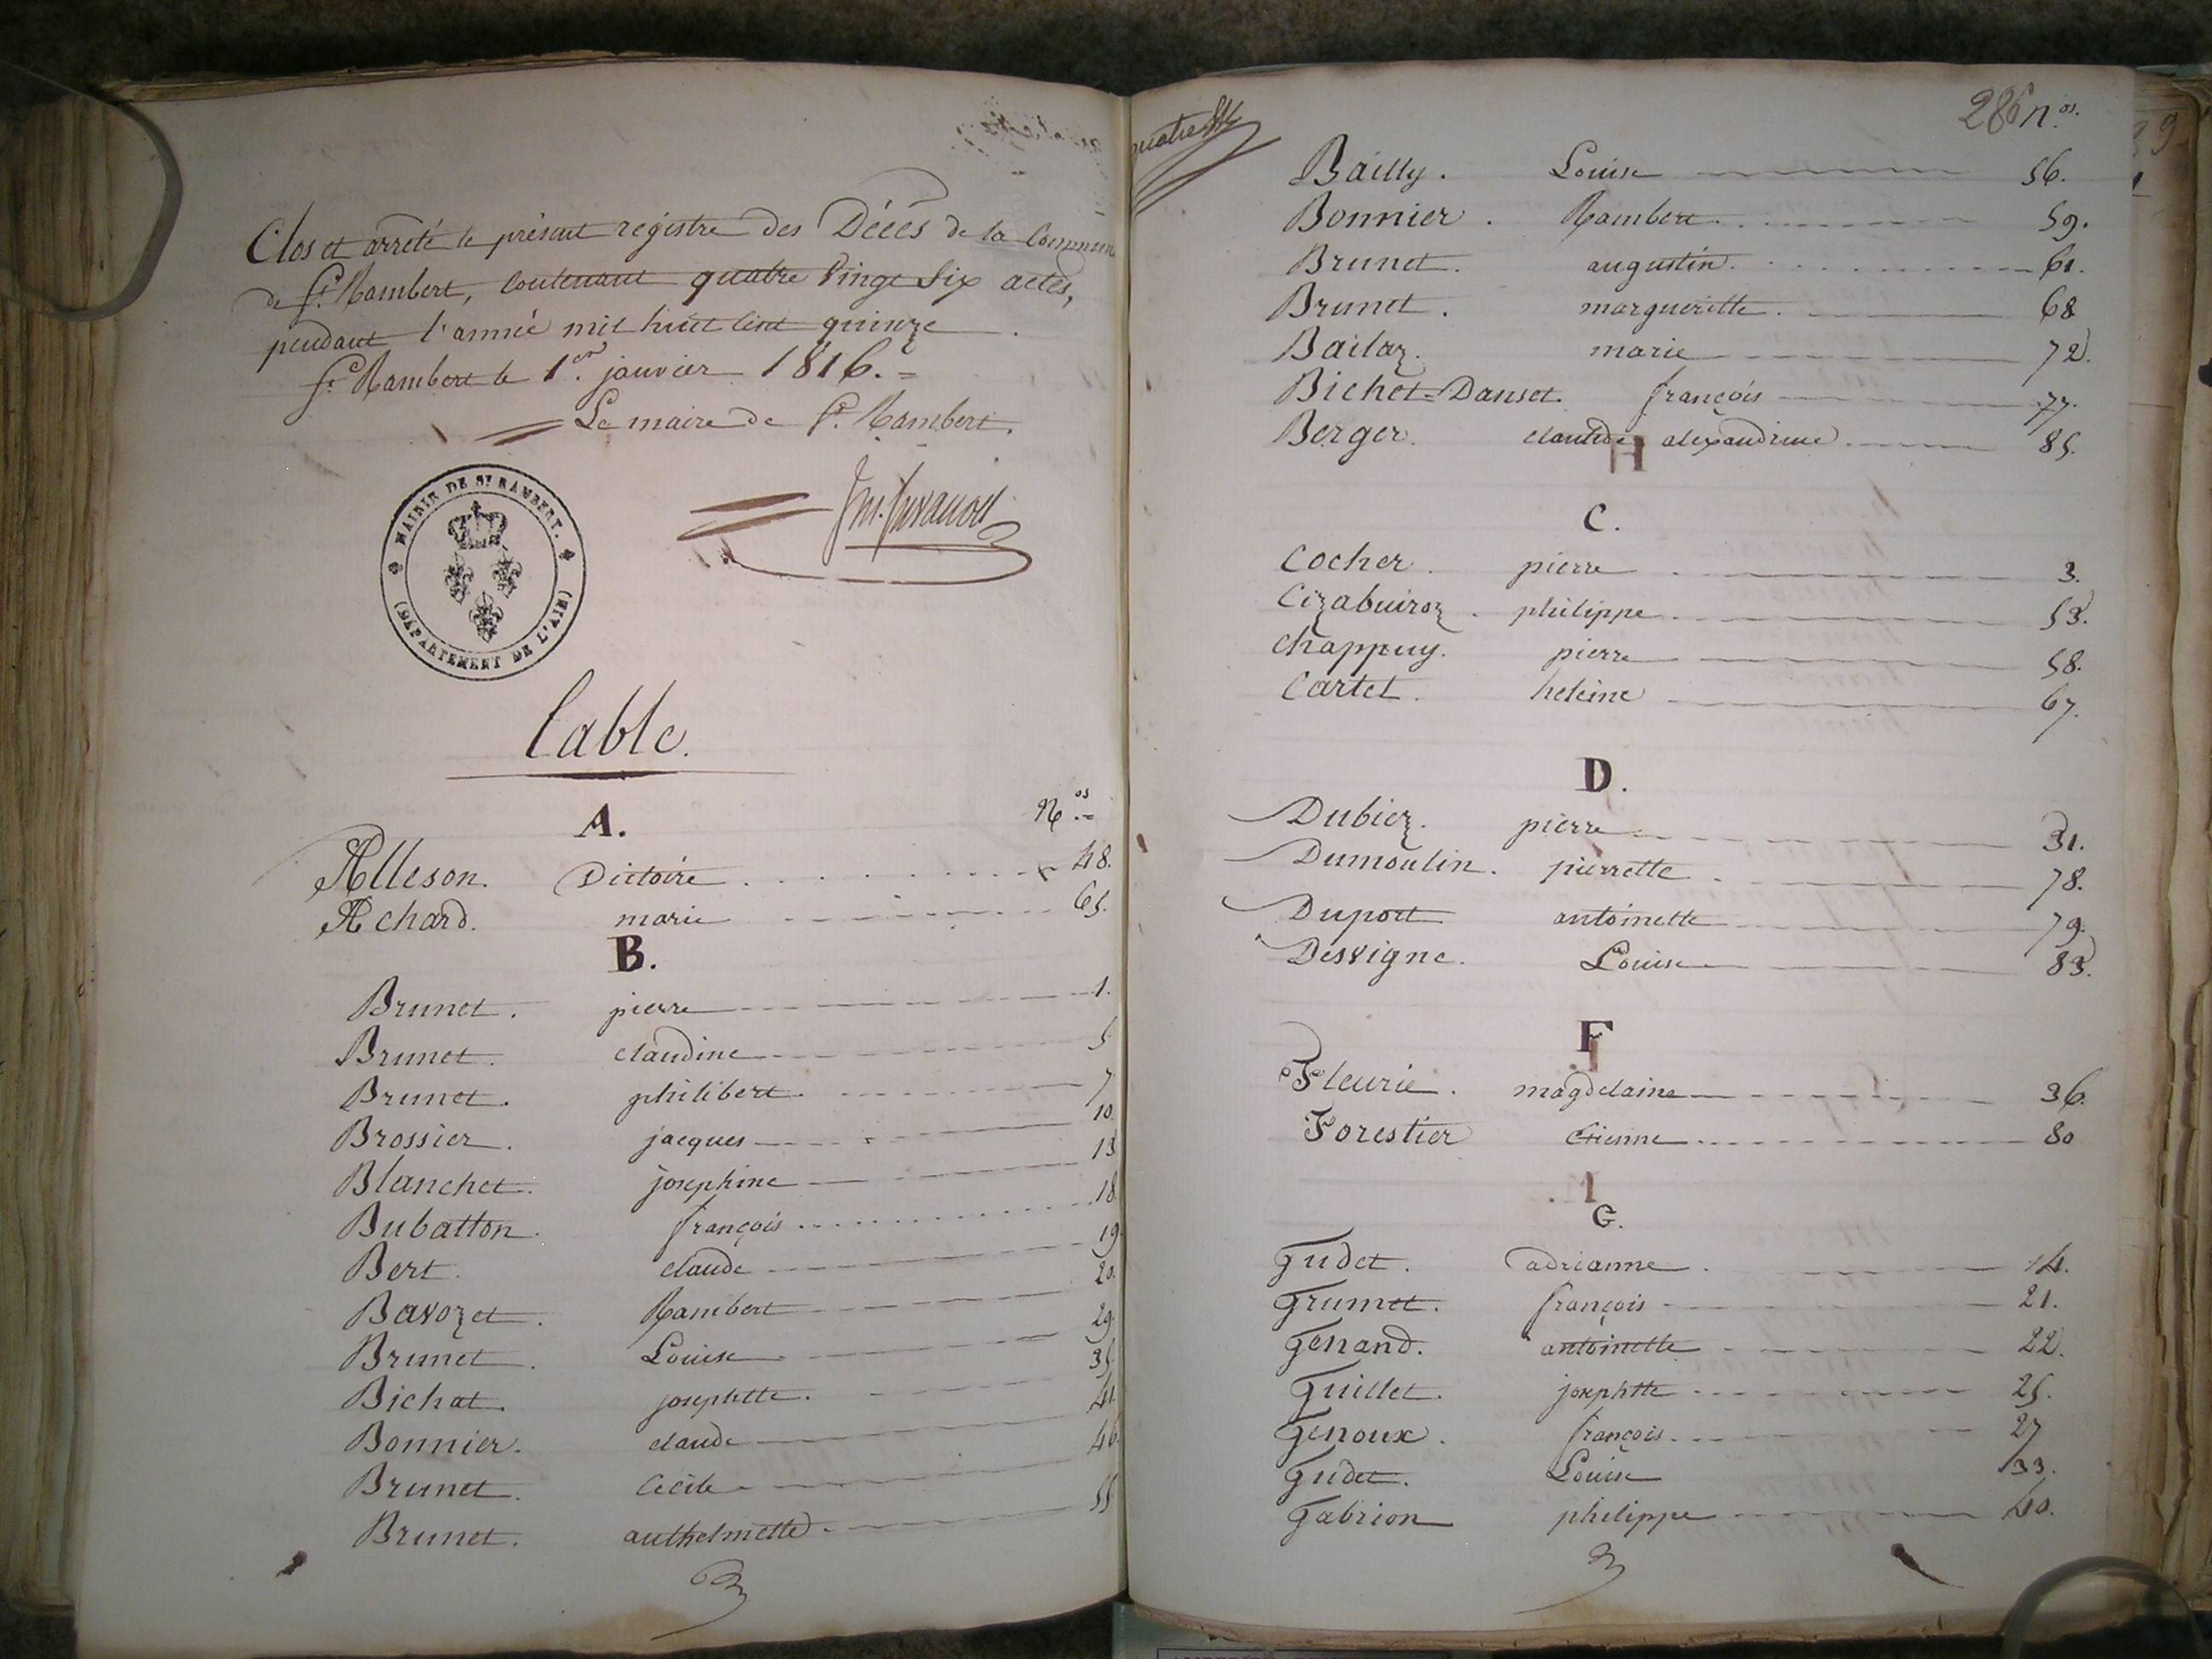 Clos et arreté le présent registre des Décès de la Commune
de St. Rambert, contenant quatre vingt Six actes,
pendant l'année mil huit cent quinze.
St. Rambert le 1er. janvier 1816.=
Le maire de St. Rambert.
MAIRIE DE ST RAMBERT.
(DÉPARTEMENT DE L'AIN)
Table.
A. Nos.=
Alleson. Victoire 48.
Achard. marie 65.
B.
Brunet. pierre 1.
Brunet. claudine 5
Brunet. philibert 7
Brossier. jacques 10.
Blanchet. josephine 13
Bubatton. françois 18
Bert. claude 19.
Bavozet. Rambert 20.
Brunet. Louise 29.
Bichat. josephtte. 35.
Bonnier. claude 41.
Brunet. Cécile 46.
Brunet. anthelmette 55
286 nos.
Bailly. Louise 56.
Bonnier. Rambert. 59.
Brunet. augustin. 61.
Brunet. margueritte. 68
Bailaz. marie 72.
Bichet=Danset. françois 77.
Berger. claude alexandrine 85.
H
C.
Cocher. pierre 3.
Cizabuiroz. philippe 53.
Chappuy. pierre 58.
Cartet. heleine 67.
D.
Dubiez. pierre 31.
Dumoulin. pierrette 78.
Duport antoinette 79.
Desvigne. Louise 83.
F
Fleurie. magdelaine 36.
Forestier etienne 80
G.
Gudet. adrianne 14.
Grumet. françois 21.
Genand. antoinette 22.
Guillet. josephtte 25.
Genoux. françois 27
Gudet. Louise 33.
Gabrion philippe 40.